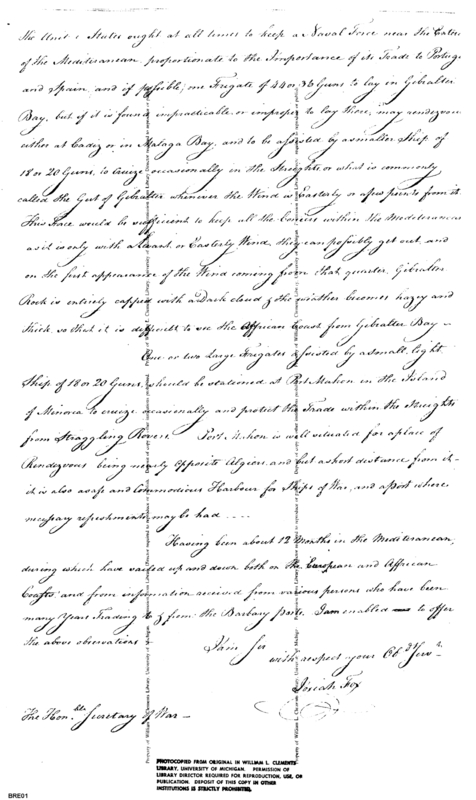 The Unit States ought at all times to keep a Naval Force near the Entra
of the Mediterranean proportionate to the Importance of its Trade to Portuga
and Spain, and if possible, one Frigate of 44 or 36 Guns to lay in Gibralter
Bay, but if it is found impracticable or improper to lay there, may rendezvous
either at Cadiz or in Malaga Bay, and to be assisted by a smaller Ship of
18 or 20 Guns, to cruize occasionally in the Streights or what is commonly
called the Gut of Gibralter whenever the Wind is Easterly or apprears from it.
This Force would be sufficient to keep all the Corsairs within the Mediteranean
as it is only with a Levant, or Easterly Wind, they can possibly get out, and
on the first appearance of the Wind coming from that quarter, Gibralter
Rock is entirely capped with a Dark cloud & the weather becomes hazey and
thick, so that it is difficult to see the Affrican Coast from Gibralter Bay —
One or two Large Frigates assisted by a small light
Ship of 18 or 20 Guns, should be stationed at Port Mahon in the Island
of Minorca to cruize occasionally and protect the Trade within the Streights
from Straggling Rovers Port Mahon is well situated for a place of
Rendezvous being nearly opposite Algiers, and but a short distance from it —
it is also a safe and Commodious Harbour for Ships of War, and a port where
necessary refreshments may be had ----
Having been about 12 Months in the Mediteranean,
during which have sailed up and down both on the European and Affrican
Coasts, and from information received from various persons who have been
many Years Trading to & from the Barbary ports. I am enabled to offer
the above observations
I am Sir
with respect your Obdt Servt.
Josiah Fox
The Honble Secretary of War —
PHOTOCOPIED FROM ORIGINAL IN WILLIAM L. CLEMENTS
LIBRARY, UNIVERSITY OF MICHIGAN. PERMISSION OF
LIBRARY DIRECTOR REQUIRED FOR REPRODUCTION, USE, OR
PUBLICATION. DEPOSIT OF THIS COPY IN OTHER
INSTITUTIONS IS STRICTLY PROHIBITED.
BRE01